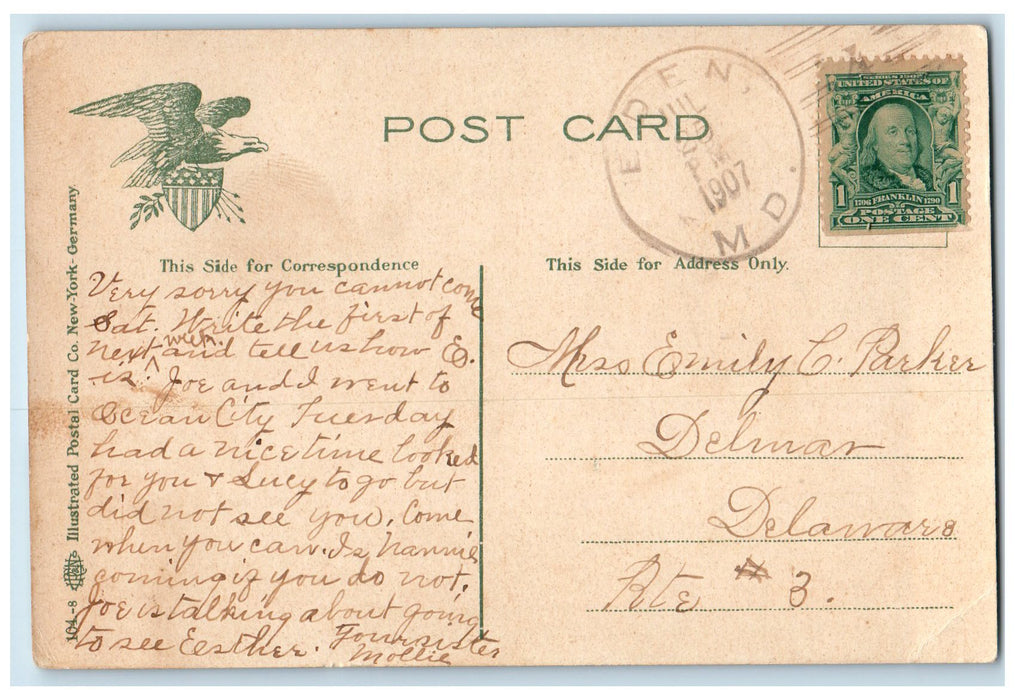 POST CARD
EDEN, MD.
JUL
1907
SERIES 1902
UNITED STATES OF
AMERICA
1 1
1706 FRANKLIN 1790
POSTAGE
ONE CENT
This Side for Correspondence
This Side for Address Only.
104-8 Illustrated Postal Card Co. New-York - Germany.
Very sorry you cannot come
Sat. Write the first of
next week. and tell us how E.
is. Joe and I went to
Ocean City Tuesday
had a nice time looked
for you & Lucy to go but
did not see you. Come
when you can. Is Nannie
coming if you do not.
Joe is talking about going
to see Eesther. Your sister
Mollie
Miss Emily C. Parker
Delmar
Delaware
Rte # 3.